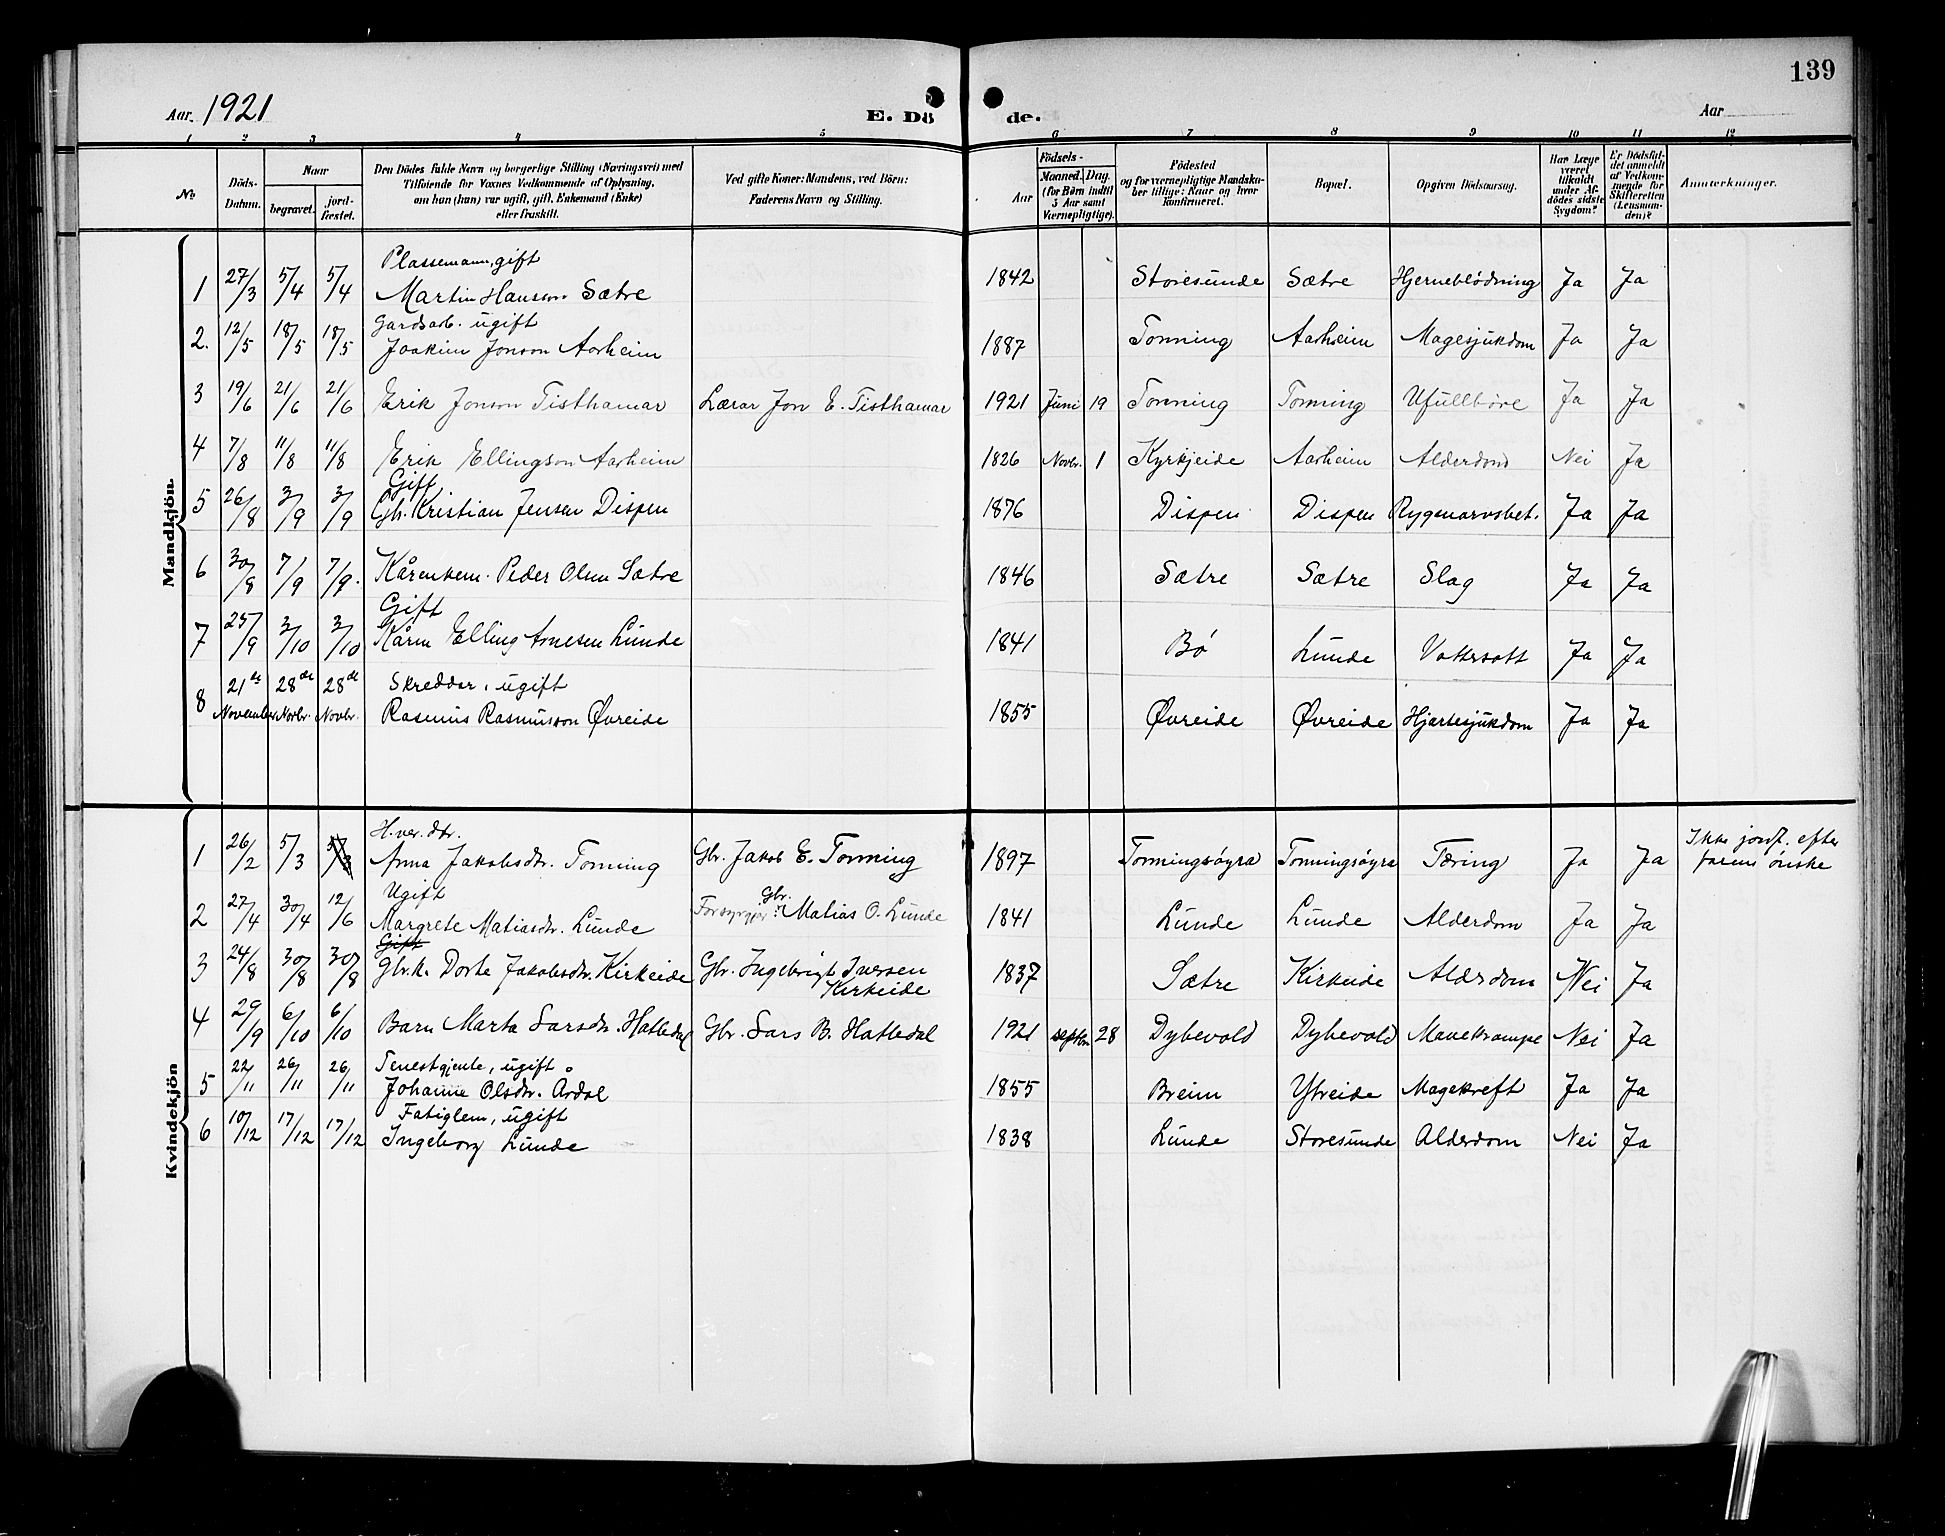 139
Aar. 1921
E. Dö de.
Aar
1 2 3 4 5 6 7 8 9 10 11 12
No.
Döds-Datum.
Naar
begravet.
jord-fæstet.
Den Dödes fulde Navn og borgerlige Stilling (Næringsvei) med
Tilföiende for Voxnes Vedkommende af Oplysning,
om hun (han) var ugift, gift, Enkemand (Enke)
eller fraskilt.
Ved gifte Koner: Mandens, ved Börn:
Faderens Navn og Stilling.
Aar
Födsels-
Maaned. Dag.
(for Börn indtil
5 Aar samt
Værnepligtige).
Födested
og for værnepligtige Mandska-
ber tillige: Naar og hvor
konfirmeret.
Bopæl.
Opgiven Dödsaarsag.
Har Læge
været
tilkaldt
under Af-
dödes sidste
Sygdom?
Er Dödsfal-
det anmeldt
af Vedkom-
mende for
Skifteretten
(Lensman-
den)?
Anmærkninger.
Mandkjön.
Plassemann, gift
1 27/3 5/4 5/4 Martin Hanson Sætre 1842 Storesunde Sætre Hjerneblödning Ja Ja
Gardsarb. ugift
2. 12/5 18/5 18/5 Joakim Jonson Aarheim 1887 Tonning Aarheim Magesjukdom Ja Ja
3 19/6 21/6 21/6 Erik Jonson Tisthamar Lærar Jon E. Tisthamar 1921 Juni 19 Tonning Tonning Ufullbore Ja Ja
4 7/8 11/8 11/8 Erik Ellingson Aarheim 1826 Novbr. 1 Kyrkjeide Aarheim Alderdom Nei Ja
Gift
5 26/8 3/9 3/9 Gbr. Kristian Jensen Dispen 1876 Dispen Dispen Rygmarvsbet. Ja Ja
6 30/8 7/9 7/9. Kårenkem. Peder Olsen Sætre 1846 Sætre Sætre Slag Ja Ja
Gift
7 25/9 3/10 3/10 Kårm Elling Arnesen Lunde 1841 Bø Lunde Vattersott Ja Ja
8 21de November 28de Novbr. 28de Novbr. Skreddar, ugift
Rasmus Rasmusson Øvreide 1855 Øvreide Øvreide Hjartesjukdom Ja Ja
Kvindekjön
H.ver. dtr.
1 26/2 5/3 5/3 Anna Jakobsdtr. Tonning Gbr. Jakob E. Tonning 1897 Tonningsöyra Tonningsöyra Tæring Ja Ja Ikke jordf. efter
farens önske
Ugift
2 27/4 30/4 12/6 Margrete Matiasdtr. Lunde Gbr. Matias O. Lunde 1841 Lunde Lunde Alderdom Ja Ja
Gift
3 24/8 30/8 30/8 Gbr.k. Dorte Jakobsdtr. Kirkeide Gbr. Ingebrigt Iversen
Kirkeide 1837 Sætre Kirkeide Alderdom Nei Ja
4 29/9 6/10 6/10 Barn Marta Larsdtr. Hatledal Gbr. Lars B. Hatledal 1921 septbr 28 Dybevold Dybevold Mavekrampe Nei Ja
Tenestgjente, ugift
5 22/11 26/11 26/11 Johanne Olsdtr. Årdal 1855 Breim Ytreide Magekreft Ja Ja
Fatiglem, ugift
6 10/12 17/12 17/12 Ingeborg Lunde 1838 Lunde Storesunde Alderdom Nei Ja